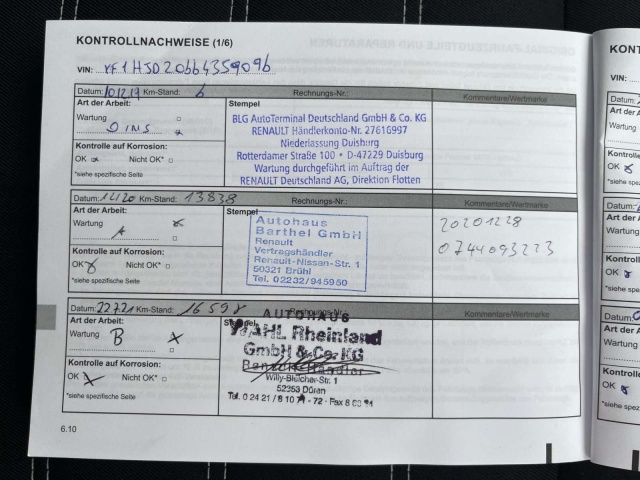 KONTROLLNACHWEISE (1/6)
VIN: VF1HJD20664359096
Datum: 10.12.19 Km-Stand: 6 Rechnungs-Nr.: Kommentare/Wertmarke
Art der Arbeit: Stempel
Wartung
BLG AutoTerminal Deutschland GmbH & Co. KG
RENAULT Händlerkonto-Nr. 27616997
Niederlassung Duisburg
Rotterdamer Straße 100 • D-47229 Duisburg
Wartung durchgeführt im Auftrag der
RENAULT Deutschland AG, Direktion Flotten
Kontrolle auf Korrosion:
OK Nicht OK*
*siehe spezifische Seite
Datum: Km-Stand: 13838 Rechnungs-Nr.: Kommentare/Wertmarke
Art der Arbeit: Stempel
Wartung
A
Autohaus
Barthel GmbH
Renault
Vertragshändler
Renault-Nissan-Str. 1
50321 Brühl
Tel. 02232/945950
20201228
0744093223
Kontrolle auf Korrosion:
OK Nicht OK*
*siehe spezifische Seite
Datum: 22.7.21 Km-Stand: 16598 Rechnungs-Nr.: Kommentare/Wertmarke
Art der Arbeit: Stempel
Wartung B
AUTOHAUS
Rheinland
GmbH & Co. KG
Willy-Bleicher-Str. 1
52353 Düren
Kontrolle auf Korrosion:
OK Nicht OK*
*siehe spezifische Seite
6.10
KONT
VIN:
Datum:
Art der A
Wartung
Kontrolle
OK
*siehe spe
Datum:
Art der A
Wartung
Kontrolle
OK
*siehe spe
Datum:
Art der A
Wartung
Kontrolle
OK
*siehe spe